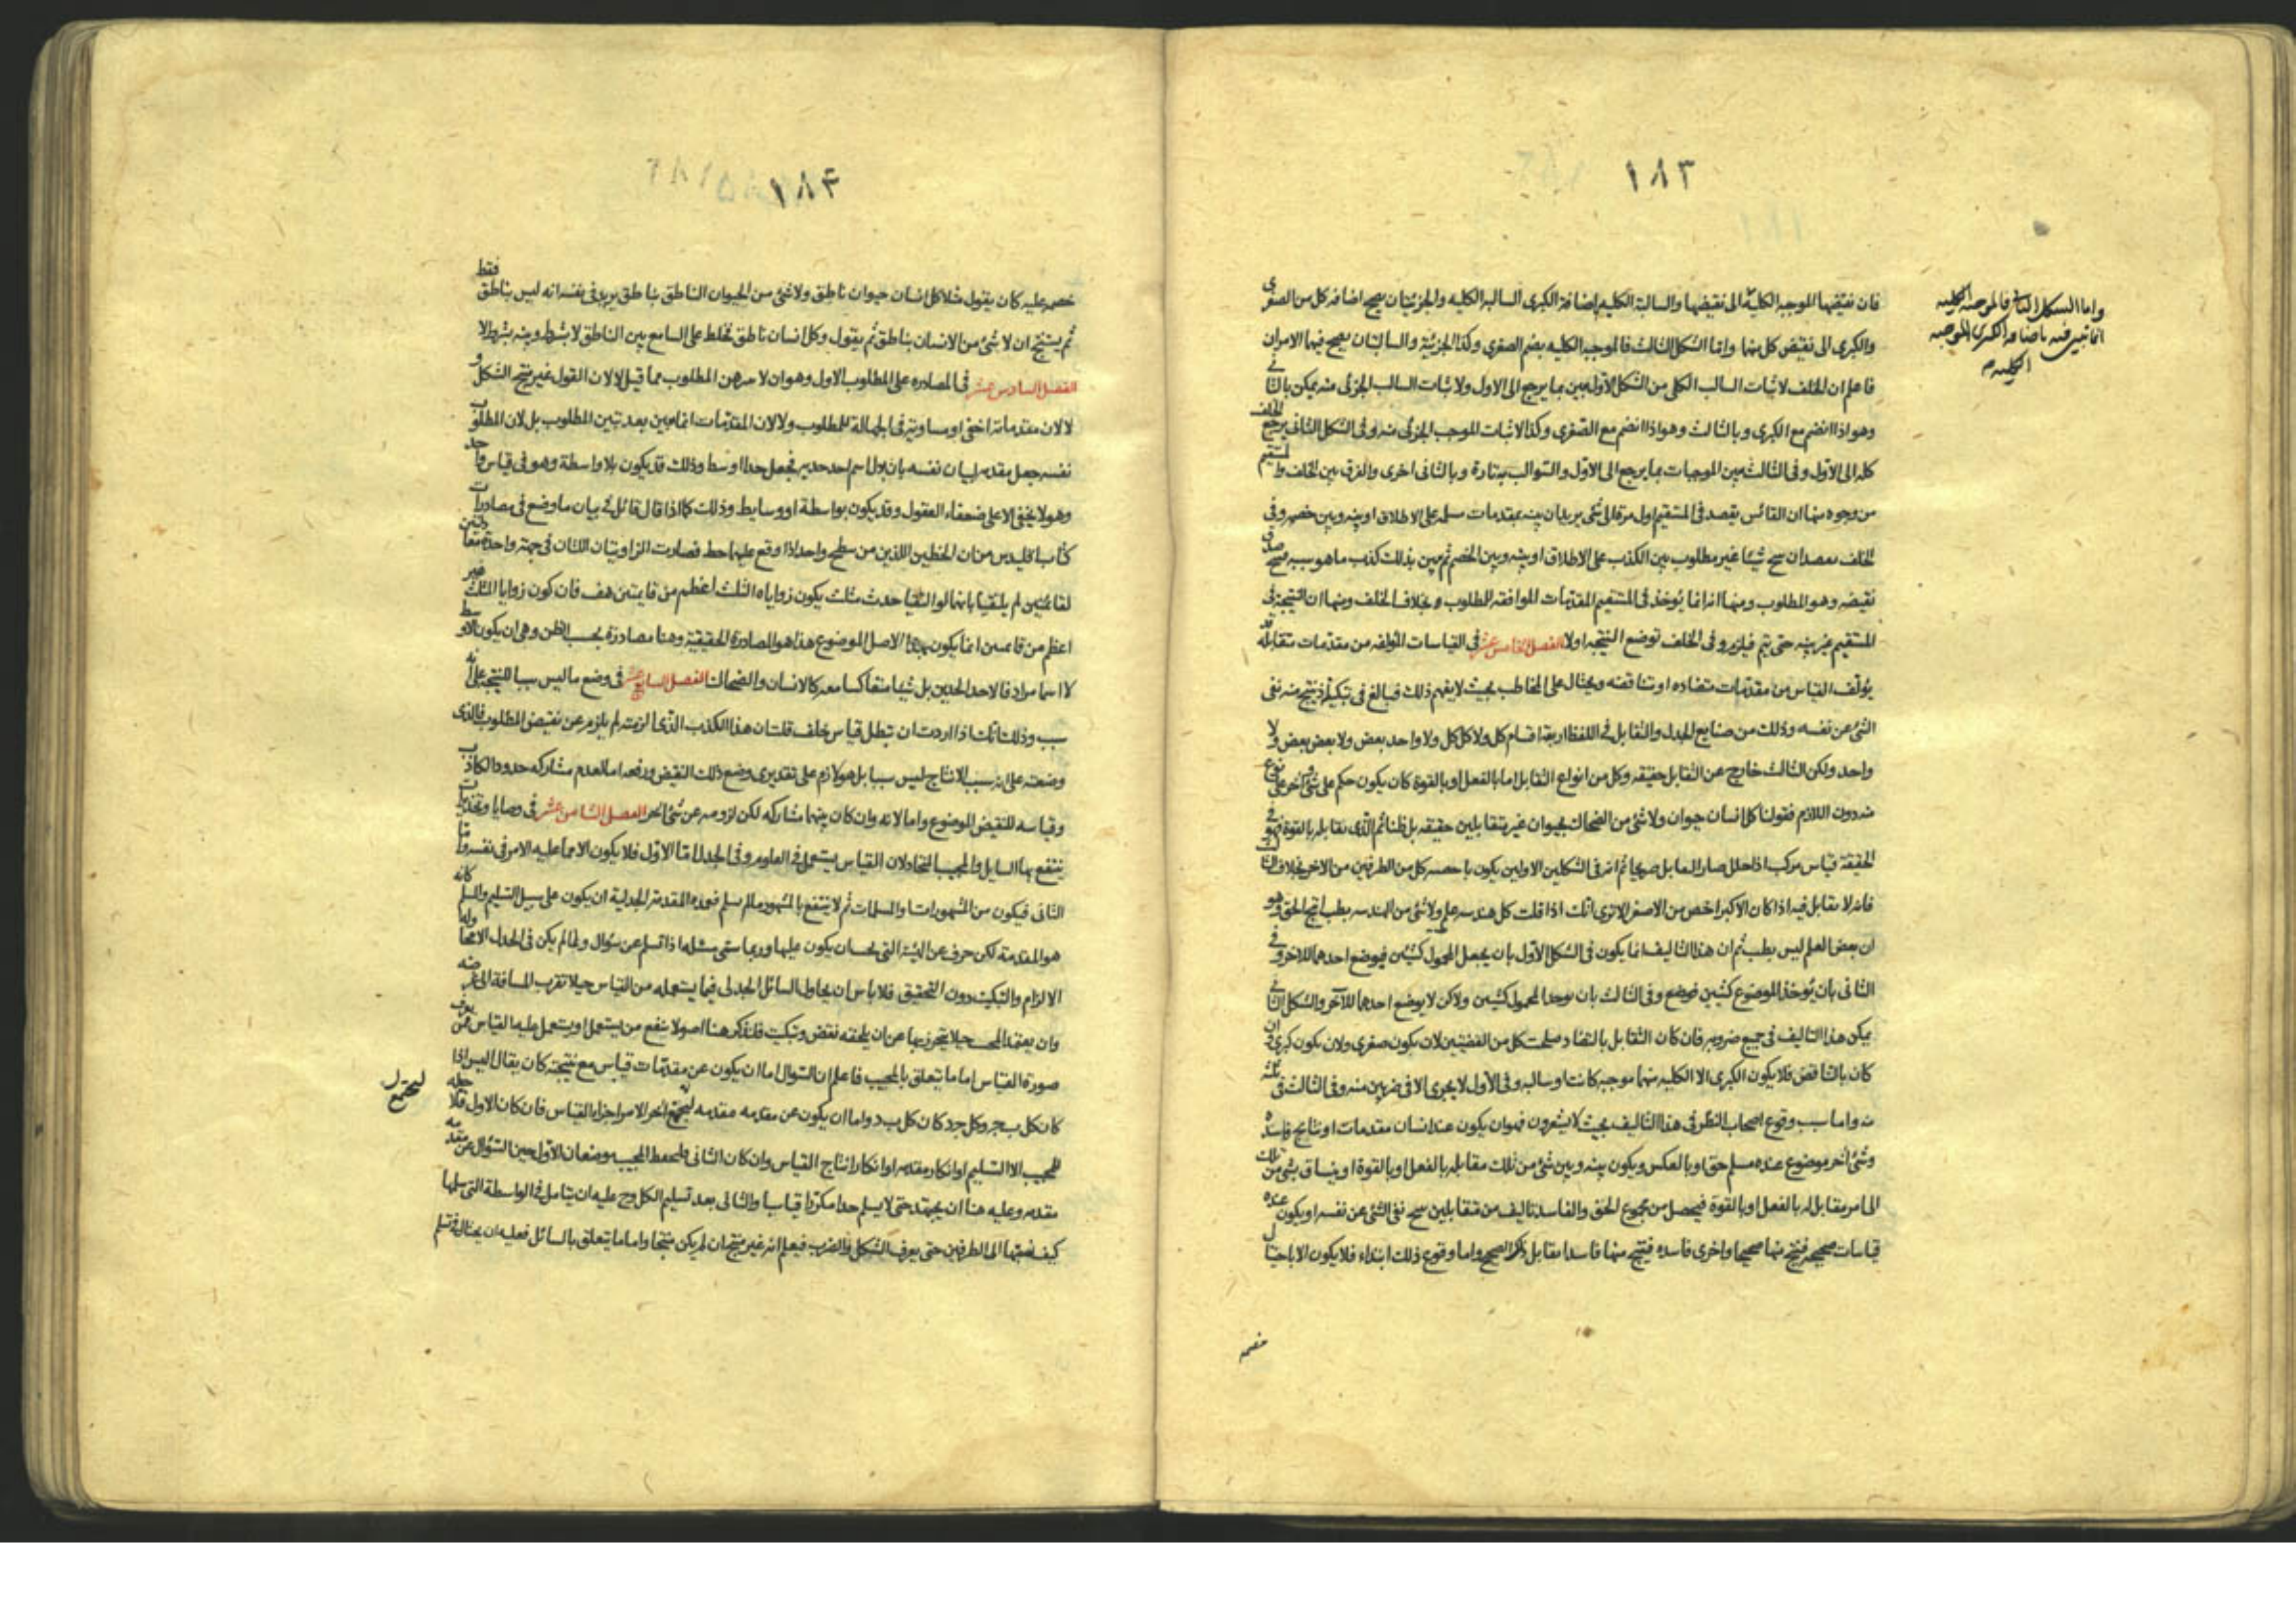 ١٨٣
واما الشكل الثانى فالموجبه الكليه
انما تبين فيه باضافه الكبرى الموجبه
الكليه
فان نقيضها الموجبه الكلية الى نقيضها والسالبة الكليه باضافة الكبرى السالبه الكليه والجزئيتان يصح اضافه كل من الصغرى
والكبرى الى نقيض كل منهما واما الشكل الثالث فالموجبه الكليه بضم الصغرى وكذا الجزئية والسالبتان يصح فيهما الامران
فاعلم ان الخلف لاثبات السالب الكلى من الشكل الاول يبين بما يرجع الى الاول ولاثبات السالب الجزئى منه يمكن بالثانى
وهو اذا انضم مع الكبرى وبالثالث وهو اذا انضم مع الصغرى وكذا لاثبات الموجب الجزئى منه وفى الشكل الثانى يرجع الخلف
كله الى الاول وفى الثالث يبين الموجبات بما يرجع الى الاول والسوالب به تارة وبالثانى اخرى والفرق بين الخلف والمستقيم
من وجوه منها ان القائس يقصد فى المستقيم اول مرة الى شئ يريد ان يبينه بمقدمات مسلمه على الاطلاق او بينه وبين خصمه وفى
الخلف يقصد ان ينتج شيئا غير مطلوب بين الكذب على الاطلاق او بينه وبين الخصم ثم يبين بذلك كذب ما هو سببه فينتج صدق
نقيضه وهو المطلوب ومنها انه انما يوخذ فى المستقيم المقدمات الموافقه للمطلوب وبخلافه الخلف ومنها ان النتيجة فى
المستقيم غير بينه حتى يتم فيلزم وفى الخلف توضع النتيجه اولا الفصل الخامس عشر فى القياسات المؤلفه من مقدمات متقابله قد
يؤلف القياس من مقدمات متضاده او متناقضه ويحتال على المخاطب بحيث لا يفهم ذلك فيبالغ فى تبكيته اذ ينتج منه نفى
الشئ عن نفسه وذلك من صنايع الجدل والتقابل فى اللفظ اربعة اقسام كل ولا كل كل ولا واحد بعض ولا بعض بعض ولا
واحد ولكن الثالث خارج عن التقابل حقيقه وكل من انواع التقابل اما بالفعل او بالقوة كان يكون حكم على شئ وآخر على نوع
منه دون اللازم فقولنا كل انسان حيوان ولا شئ من الضحاك بحيوان غير متقابلين حقيقه بل ظنا ثم الذى تقابله بالقوة فهو فى
الحقيقة قياس مركب اذا حلل صار التقابل صريحا ثم انه فى الشكلين الاولين يكون كل من الطرفين من الاخر بخلاف الثالث
فانه لا تقابل فيه اذا كان الاكبر اخص من الاصغر الا ترى انك اذا قلت كل هندسه علم ولا شئ من الهندسه بطب انتج الحق وهو
ان بعض العلم ليس بطب ثم ان هذا التاليف انما يكون فى الشكل الاول بان يجعل المحمول كشيئين فيوضع احدهما للاخر وفى
الثانى بان يوخذ الموضوع كشيئين فيوضع وفى الثالث بان يوجد المحمول كشيئين ولكن لا يوضع احدهما للآخر والشكل الثانى
يمكن هذا التاليف فى جميع ضروبه فان كان التقابل بالتضاد صلحت كل من القضيتين لان يكون صغرى ولان يكون كبرى وان
كان بالتناقض فلا يكون الكبرى الا الكليه منهما موجبه كانت او سالبه وفى الاول لا يجرى الا فى ضربين منه وفى الثالث فى ثلثه
منه واما سبب وقوع اصحاب النظر فى هذا التاليف بحيث لا يشعرون فهو ان يكون عند انسان مقدمات او نتايج فاسده
وشئ آخر موضوع عنده مسلم حق او بالعكس ويكون بينه وبين شئ من تلك مقابله بالفعل او بالقوة او ينساق بشئ من تلك
الى امر مقابل له بالفعل او بالقوة فيحصل من مجموع الحق والفاسد تاليف من متقابلين ينتج نفى الشئ عن نفسه او يكون عنده
قياسات صحيحه فينتج منها صحيحا واخرى فاسده فينتج منها فاسدا يقابل ذلك الصحيح واما وقوع ذلك ابتداء فلا يكون الا باحتيال
خصمه
١٨٤
خصمه عليه كان يقول مثلا كل انسان حيوان ناطق ولا شئ من الحيوان الناطق بناطق يريد فى نفسه انه ليس بناطق فقط
ثم يستنتج ان لا شئ من الانسان بناطق ثم يقول وكل انسان ناطق تخلط على السامع بين الناطق لا بشرط وبينه بشرط لا
الفصل السادس عشر فى المصادره على المطلوب الاول وهو ان لا يبرهن المطلوب مما قيل لا لان القول غير منتج الشكل و
لا لان مقدماته اخفى او مساويه فى الجهالة للمطلوب ولا لان المقدمات انما يبين بعد تبين المطلوب بل لان المطلوب
نفسه جعل مقدمه لبيان نفسه بان بدل اسم احد حديه فجعل حدا اوسط وذلك قد يكون بلا واسطة وهو فى قياس واحد
وهو لا يخفى الا على ضعفاء العقول وقد يكون بواسطة او وسايط وذلك كما اذا قال قائل فى بيان ما وضع فى مصادرات
كتاب اقليدس من ان الخطين اللذين من سطح واحد اذا وقع عليهما خط فصارت الزاويتان اللتان فى جهة واحدة معادلتين
لقائمتين لم يلتقيا بانهما لو التقيا حدث مثلث يكون زواياه الثلث اعظم من قايمتين هف فان كون زوايا المثلث غير
اعظم من قايمتين انما يكون بهذا الاصل الموضوع هذا هو المصادرة الحقيقية وهنا مصادرة بحسب الظن وهى ان يكون الاوسط
لا اسما مرادفا لاحد الحدين بل شيئا متعاكسا معه كالانسان والضحاك الفصل السابع عشر فى وضع ما ليس سببا للنتيجه على انه
سبب وذلك انك اذا اردت ان تبطل قياس خلف قلت ان هذا الكذب الذى الزمته لم يلزم عن نقيض المطلوب فالذى
وضعته على انه سبب الانتاج ليس سببا بل هو لازم على تقديرى وضع ذلك النقيض ورفعه اما لعدم مشاركه حدود الكاذب
وقياسه للنقيض الموضوع واما لانه وان كان بينهما مشاركه لكن لزومه عن شئ آخر الفصل الثامن عشر فى وصايا وتحذيرات
ينتفع بها السايل والمجيب المتجادلان القياس يستعمل فى العلوم وفى الجدل اما الاول فلا يكون الا مما عليه الامر فى نفسه واما
الثانى فيكون من المشهورات والمسلمات ثم لا ينتفع بالمشهور مالم يسلم فهذه المقدمة الجدلية ان يكون على سبيل التسليم والمسلم كانه
هو المقدمة لكن حرف عن الهيئة التى يحسان يكون عليها وربما سمى مسئله اذا تسلم عن سؤال ولما لم يكن فى الجدل الا مجرد
الالزام والتبكيت دون التحقيق فلا باس ان يحاول السائل الجدلى فيما يستعمله من القياس حيلا تقرب المسافة الى غرضه
وان يعتمد المجيب حيلا يتحرز بها عن ان يلحقه نقض وتبكيت فلنذكر هنا اصولا ينفع من يستعمل او يستعمل عليه القياس ممن يعرف
صورة القياس اما ما يتعلق بالمجيب فاعلم ان السوال اما ان يكون عن مقدمات قياس مع نتيجته كان يقال اليس اذا
كان كل ب ج وكل ج د كان كل ب د واما ان يكون عن مقدمه مقدمه ليجتمع آخر الامر اجزاء القياس فان كان الاول فلا حيله
ليجتمع ل
للمجيب الا التسليم او انكار مقدمه او انكار انتاج القياس وان كان الثانى فليحفظ المجيب موضعان الاول حين السؤال عن مقدمه
مقدمه وعليه هنا ان يجتهد حتى لا يسلم حدا مكررا قياسيا والثانى بعد تسليم الكل وح عليه ان يتامل فى الواسطة التى سلمها
كيف نسبتها الى الطرفين حتى يعرف الشكل والضرب فيعلم انه غير منتج ان لم يكن منتجا واما ما يتعلق بالسائل فعليه ان يحتال فى تسلم